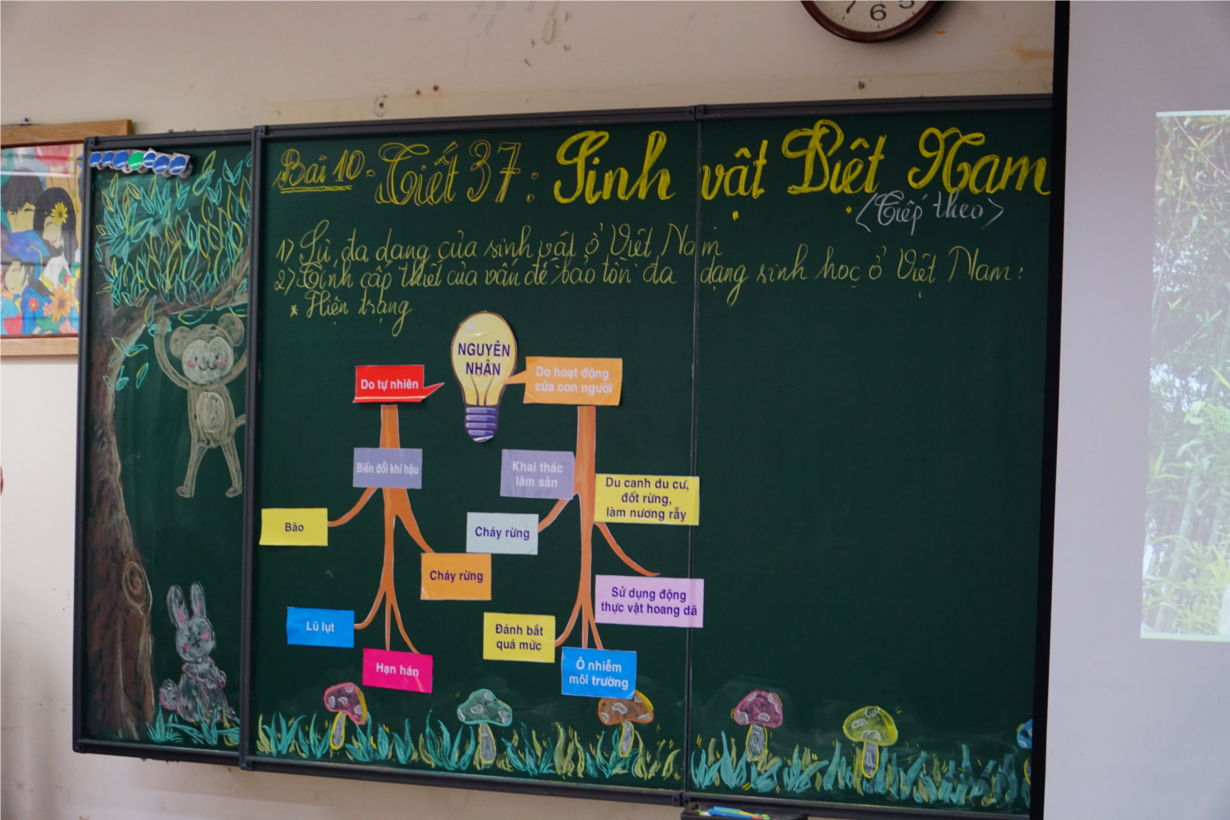 7 6 5
Bài 10 - Tiết 37: Sinh vật Việt Nam
<Tiếp theo>
1) Sự đa dạng của sinh vật ở Việt Nam
2) Tính cấp thiết của vấn đề bảo tồn đa dạng sinh học ở Việt Nam:
* Hiện trạng
NGUYÊN
NHÂN
Do tự nhiên
Biến đổi khí hậu
Bão
Cháy rừng
Lũ lụt
Hạn hán
Do hoạt động
của con người
Khai thác
lâm sản
Du canh du cư,
đốt rừng,
làm nương rẫy
Cháy rừng
Sử dụng động
thực vật hoang dã
Đánh bắt
quá mức
Ô nhiễm
môi trường